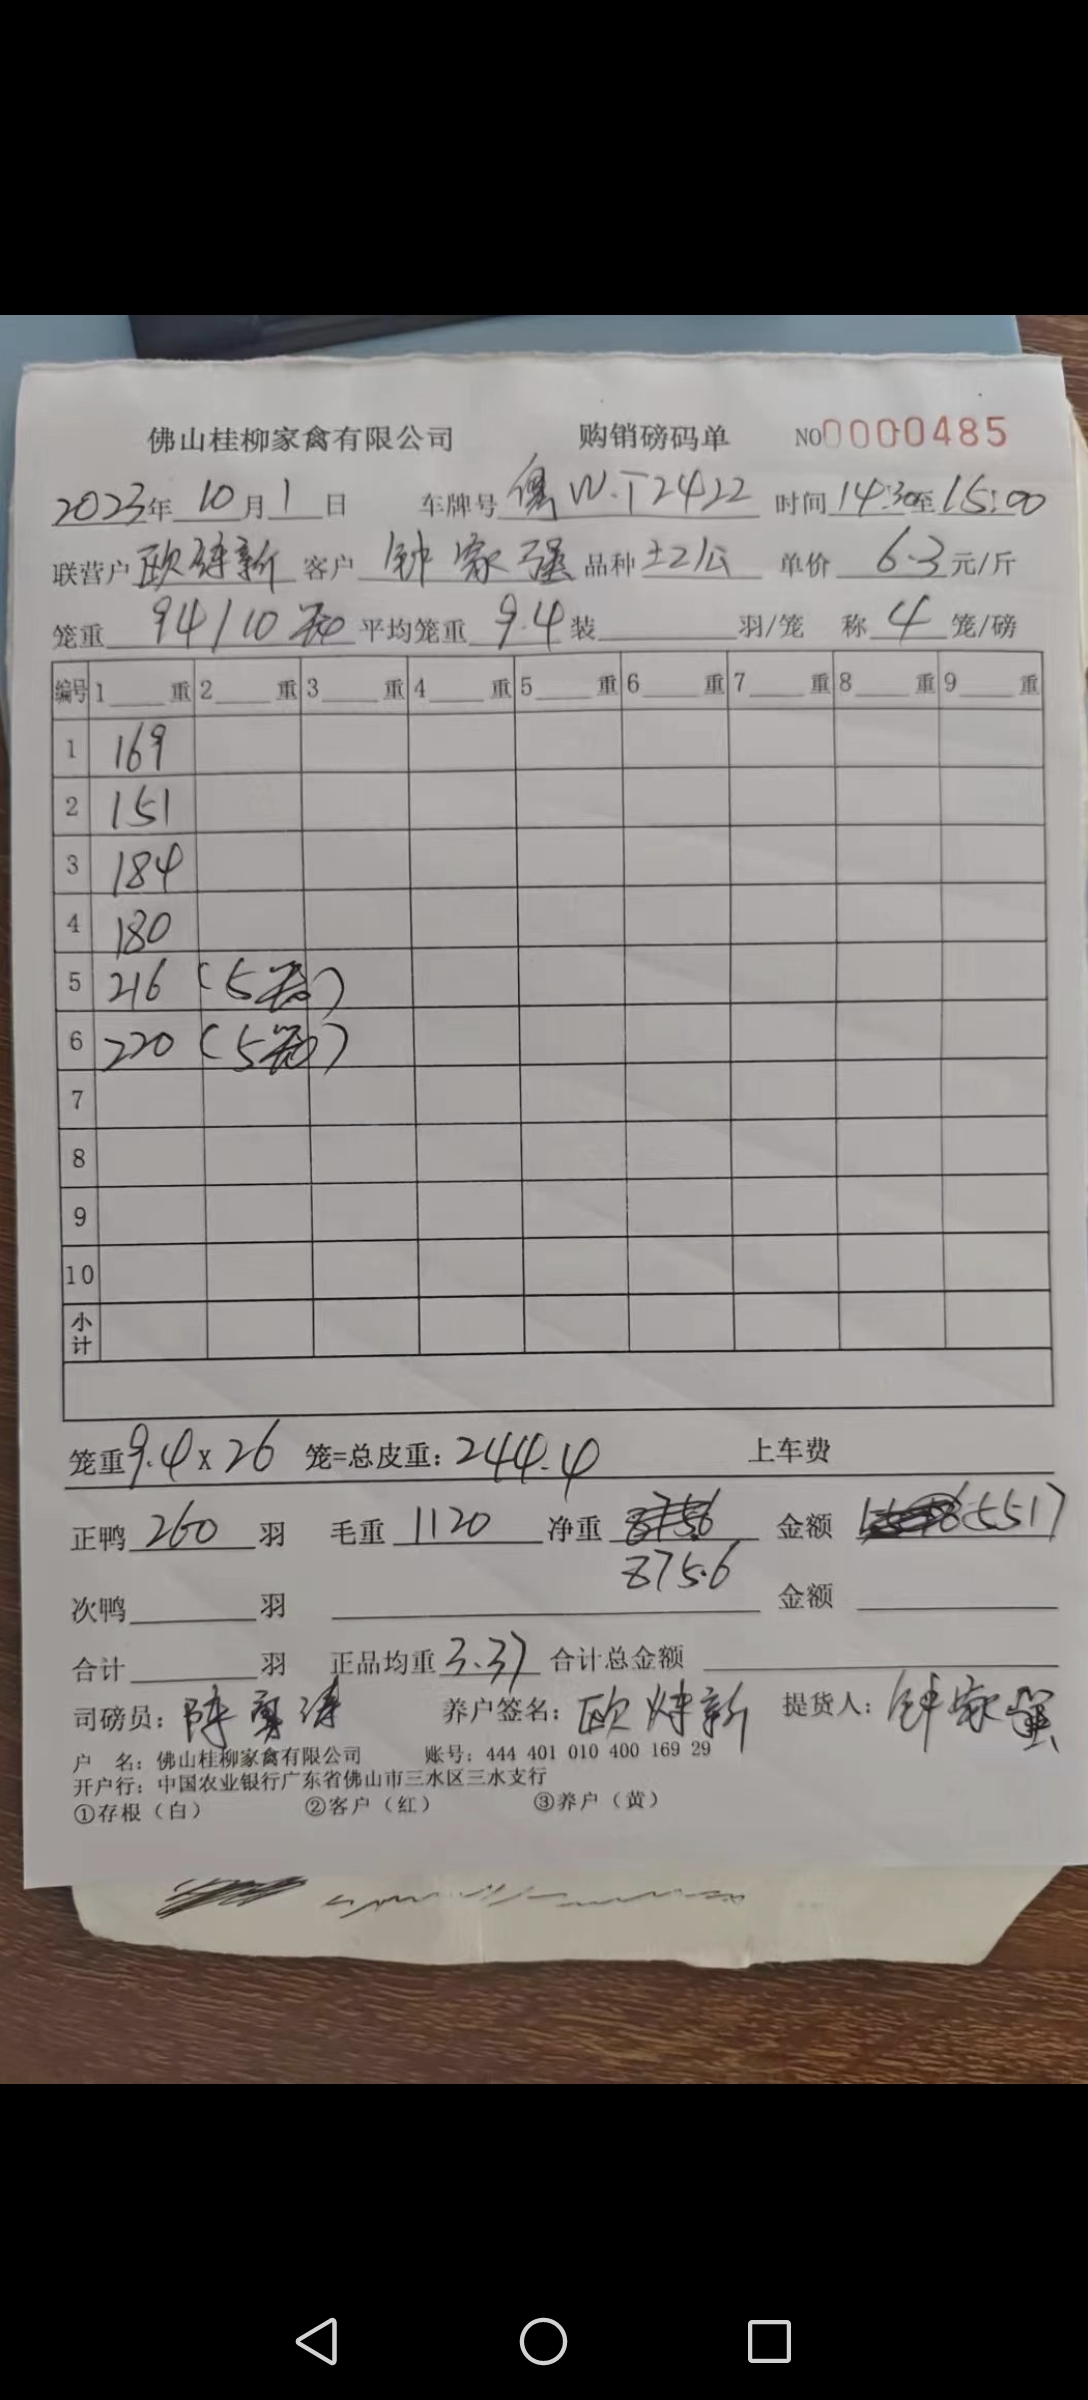 佛山桂柳家禽有限公司 购销磅码单 NO0000485
2023年10月1日 车牌号 W·T2422 时间14:30至15:00
联营户 欧 新 客户 钟家强 品种 土2公 单价 6.3元/斤
笼重 94/10 平均笼重 9.4 装 羽/笼 称 4 笼/磅
编号 1 重 2 重 3 重 4 重 5 重 6 重 7 重 8 重 9 重
1 169
2 151
3 184
4 180
5 216 (5笼)
6 220 (5笼)
7
8
9
10
小计
笼重9.4×26 笼=总皮重:244.4 上车费
正鸭 260 羽 毛重 1120 净重 金额 5517
875.6
次鸭 羽 金额
合计 羽 正品均重 3.37 合计总金额
司磅员: 陈勇涛 养户签名: 欧 新 提货人: 钟家强
户 名: 佛山桂柳家禽有限公司 账号: 444 401 010 400 169 29
开户行: 中国农业银行广东省佛山市三水区三水支行
①存根（白） ②客户（红） ③养户（黄）